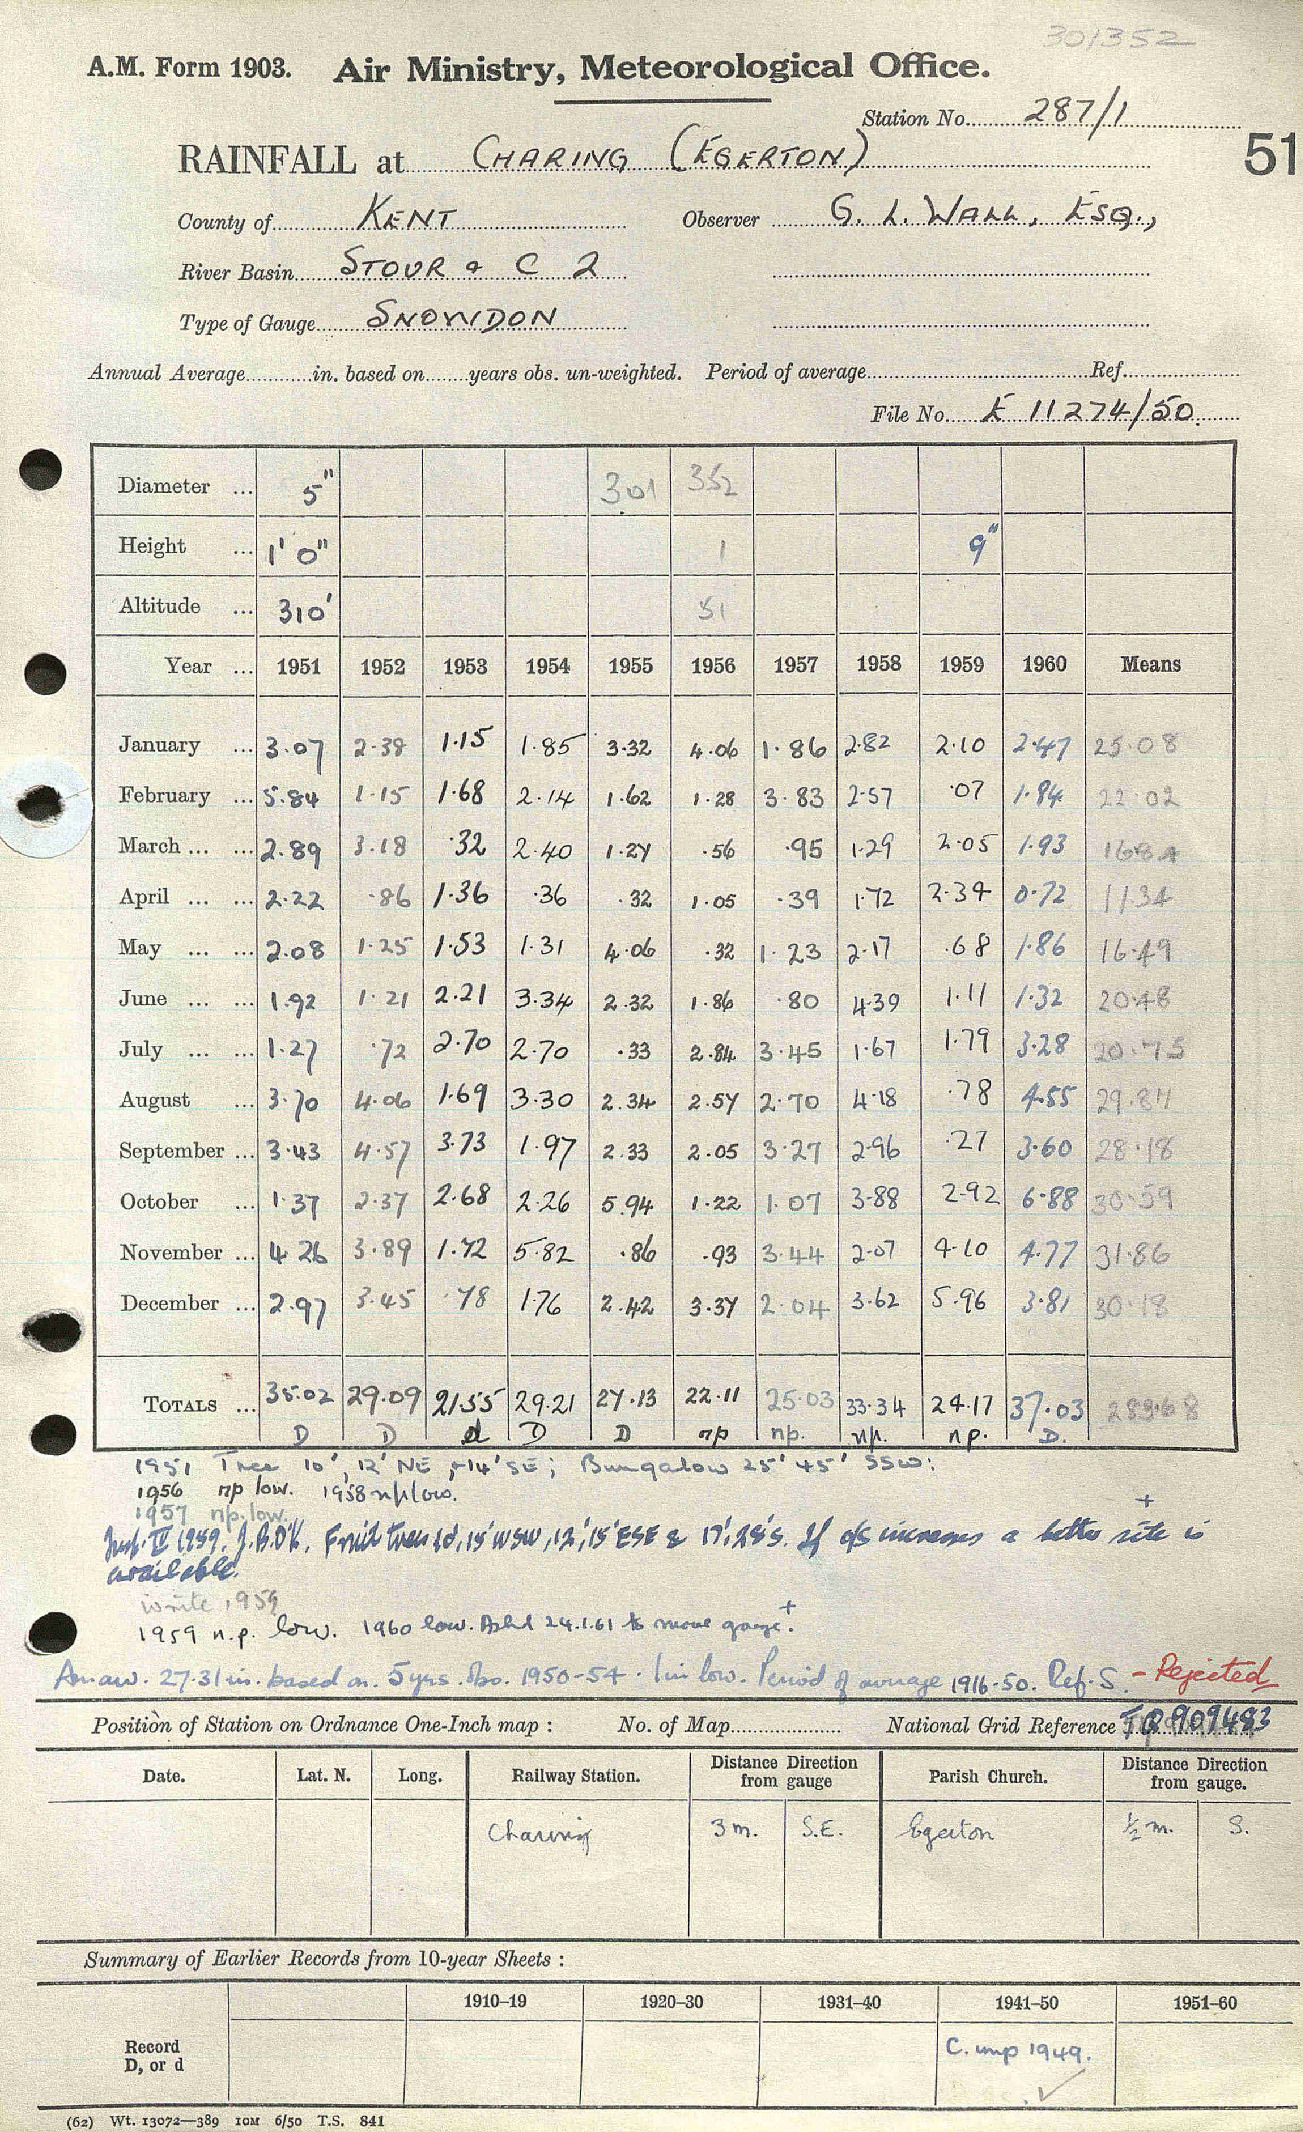 301352
A.M. Form 1903. Air Ministry, Meteorological Office.
Station No. 287/1
51
RAINFALL at CHARING (EGERTON)
County of KENT Observer G. L. WALL, ESQ.,
River Basin STOUR & C 2
Type of Gauge SNOWDON
Annual Average in. based on years obs. un-weighted. Period of average Ref.
File No. E 11274/50.
Diameter ... 5" 301 352
Height ... 1' 0" 1 9"
Altitude ... 310' 51
Year ... 1951 1952 1953 1954 1955 1956 1957 1958 1959 1960 Means
January ... 3.07 2.38 1.15 1.85 3.32 4.06 1.86 2.82 2.10 2.47 25.08
February ... 5.84 1.15 1.68 2.14 1.62 1.28 3.83 2.57 .07 1.84 22.02
March ... ... 2.89 3.18 .32 2.40 1.27 .56 .95 1.29 2.05 1.93 16.84
April ... ... 2.22 .86 1.36 .36 .32 1.05 .39 1.72 2.34 0.72 11.34
May ... ... 2.08 1.25 1.53 1.31 4.06 .32 1.23 2.17 .68 1.86 16.49
June ... ... 1.92 1.21 2.21 3.34 2.32 1.86 .80 4.39 1.11 1.32 20.48
July ... ... 1.27 .72 2.70 2.70 .33 2.84 3.45 1.67 1.79 3.28 20.75
August ... 3.70 4.06 1.69 3.30 2.34 2.57 2.70 4.18 .78 4.55 29.87
September ... 3.43 4.57 3.73 1.97 2.33 2.05 3.27 2.96 .27 3.60 28.18
October ... 1.37 2.37 2.68 2.26 5.94 1.22 1.07 3.88 2.92 6.88 30.59
November ... 4.26 3.89 1.72 5.82 .86 .93 3.44 2.07 4.10 4.77 31.86
December ... 2.97 3.45 .78 1.76 2.42 3.37 2.04 3.62 5.96 3.81 30.18
TOTALS ... 35.02 29.09 21.55 29.21 27.13 22.11 25.03 33.34 24.17 37.03 283.68
D D d D D np np. np. np. D.
1951 Tree 10', 12' NE, +14' SE; Bungalow 25' 45' SSW:
1956 np low. 1958 np low.
1957 np. low.
Insp. IV 1959. Fruit trees 10', 15' WSW, 12', 15' ESE & 17', 28' S. If o/s increases a better site is
available.
write 1959
1959 n.p. low. 1960 low. Askd 24.1.61 to move gauge.
An. av. 27.31 in. based on 5 yrs. obs. 1950-54. 1 in low. Period of average 1916-50. Ref. S. - Rejected
Position of Station on Ordnance One-Inch map : No. of Map National Grid Reference TQ 909483
Date. Lat. N. Long. Railway Station. Distance Direction from gauge Parish Church. Distance Direction from gauge.
Charing 3 m. S.E. Egerton ½ m. S.
Summary of Earlier Records from 10-year Sheets :
1910–19 1920–30 1931–40 1941–50 1951–60
Record
D, or d
C. imp 1949.
(62) Wt. 13072—389 10M 6/50 T.S. 841